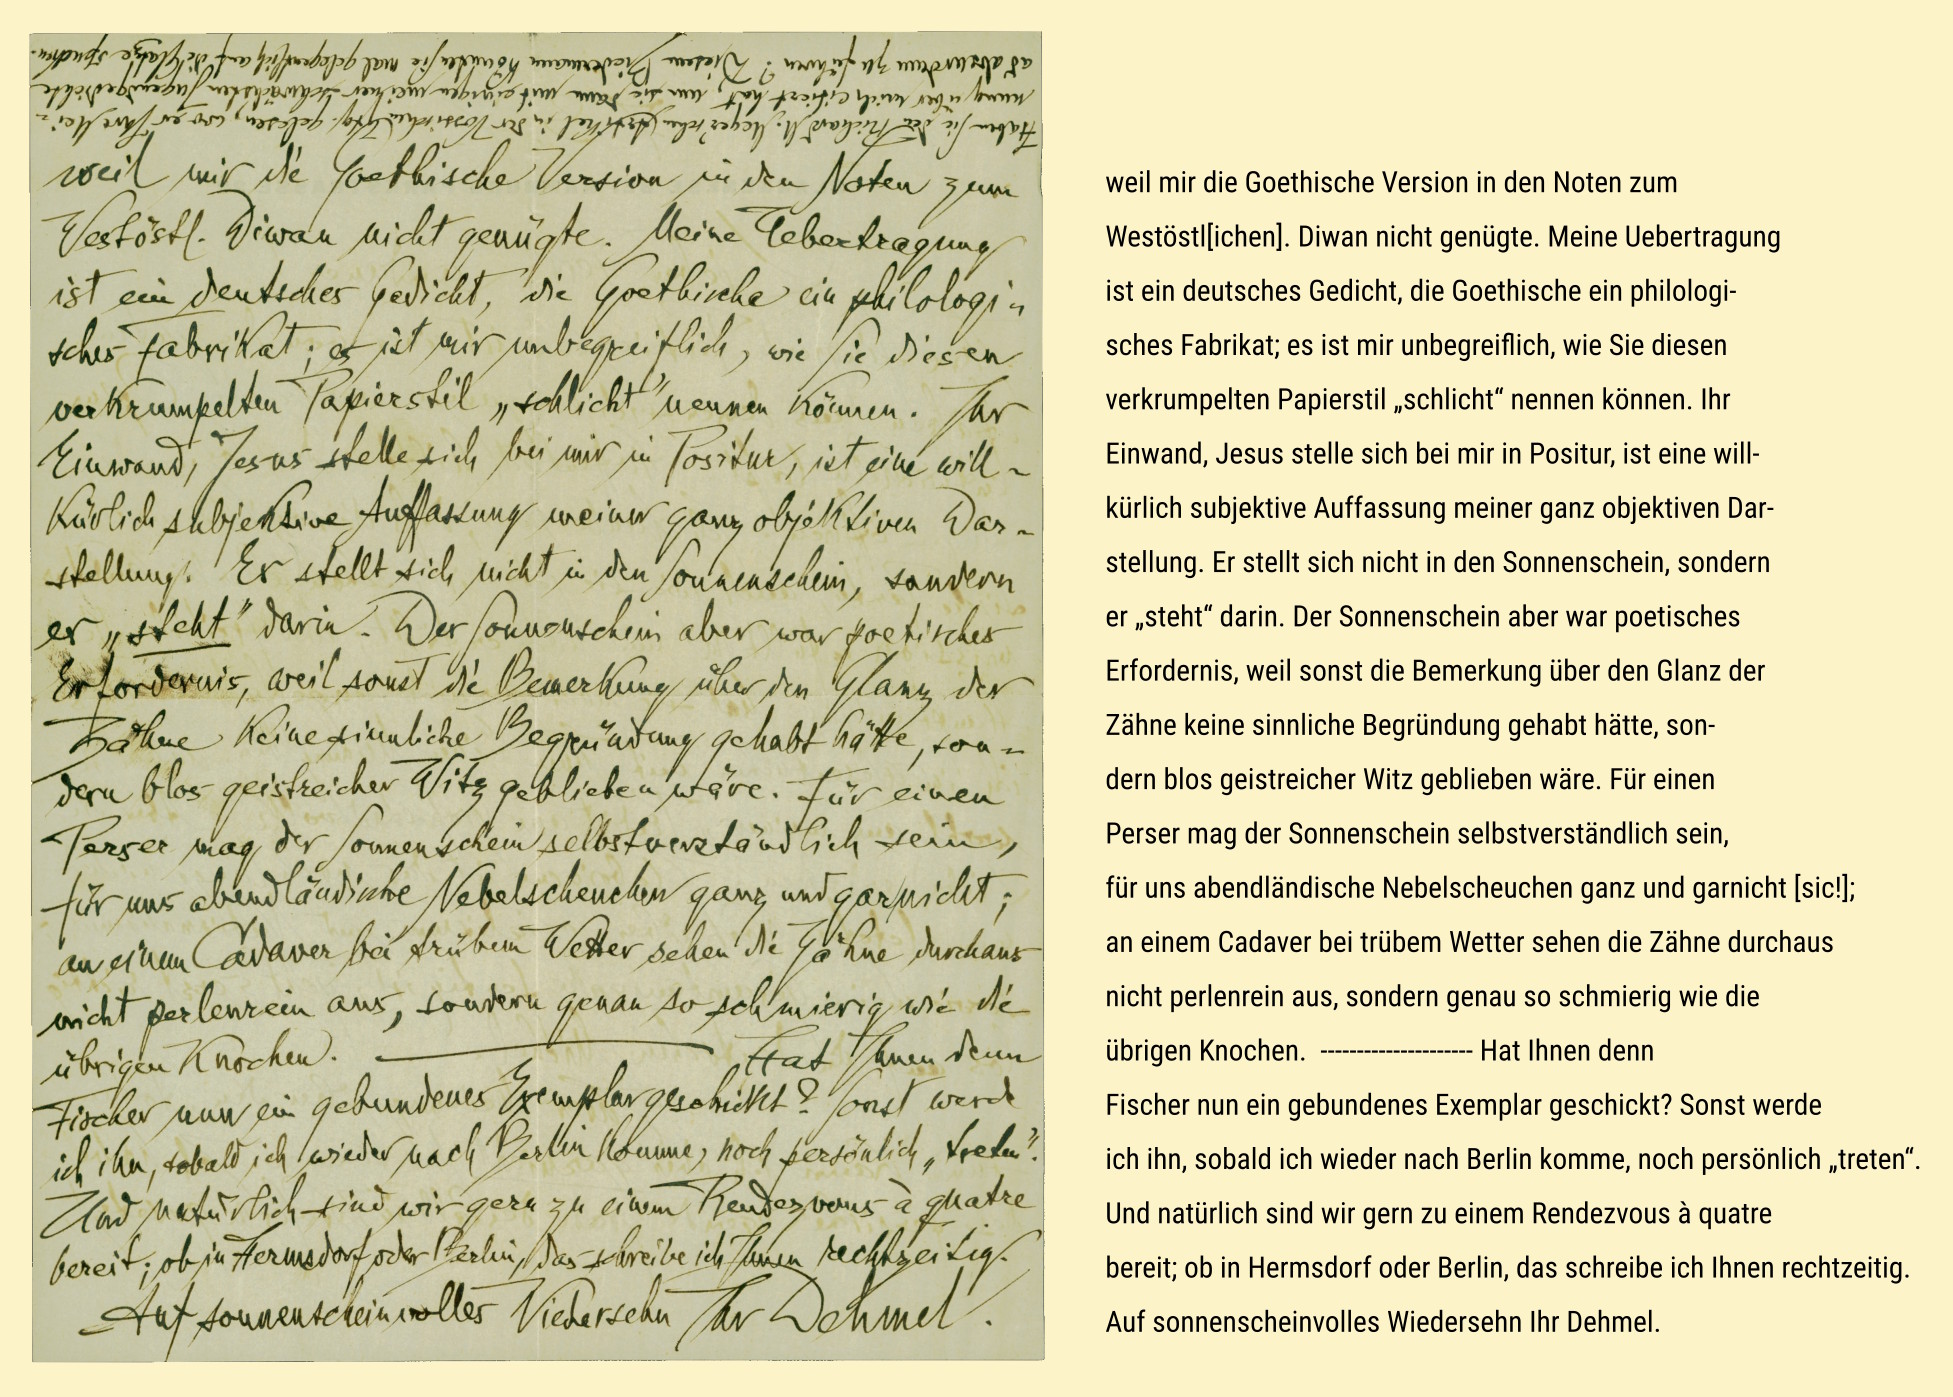 Haben Sie den Richard M. Meyer'schen Artikel in der Vossischen Ztg. gelesen, wo er Ihre Mei-
nung über mich citiert hat, um sie dann mit einigen meiner schwächsten Jugendgedichte
ad absurdum zu führen? Diesem Biedermann könnten Sie mal gelegentlich auf die Glatze spucken.
weil mir die Goethische Version in den Noten zum
Westöstl. Diwan nicht genügte. Meine Uebertragung
ist ein deutsches Gedicht, die Goethische ein philologi-
sches Fabrikat; es ist mir unbegreiflich, wie Sie diesen
verkrumpelten Papierstil „schlicht“ nennen können. Ihr
Einwand, Jesus stelle sich bei mir in Positur, ist eine will-
kürlich subjektive Auffassung meiner ganz objektiven Dar-
stellung. Er stellt sich nicht in den Sonnenschein, sondern
er „steht“ darin. Der Sonnenschein aber war poetisches
Erfordernis, weil sonst die Bemerkung über den Glanz der
Zähne keine sinnliche Begründung gehabt hätte, son-
dern blos geistreicher Witz geblieben wäre. Für einen
Perser mag der Sonnenschein selbstverständlich sein,
für uns abendländische Nebelscheuchen ganz und garnicht;
an einem Cadaver bei trübem Wetter sehen die Zähne durchaus
nicht perlenrein aus, sondern genau so schmierig wie die
übrigen Knochen. ——— Hat Ihnen denn
Fischer nun ein gebundenes Exemplar geschickt? Sonst werde
ich ihn, sobald ich wieder nach Berlin komme, noch persönlich „treten“.
Und natürlich sind wir gern zu einem Rendezvous à quatre
bereit; ob in Hermsdorf oder Berlin, das schreibe ich Ihnen rechtzeitig.
Auf sonnenscheinvolles Wiedersehn Ihr Dehmel.
weil mir die Goethische Version in den Noten zum
Westöstl[ichen]. Diwan nicht genügte. Meine Uebertragung
ist ein deutsches Gedicht, die Goethische ein philologi-
sches Fabrikat; es ist mir unbegreiflich, wie Sie diesen
verkrumpelten Papierstil „schlicht“ nennen können. Ihr
Einwand, Jesus stelle sich bei mir in Positur, ist eine will-
kürlich subjektive Auffassung meiner ganz objektiven Dar-
stellung. Er stellt sich nicht in den Sonnenschein, sondern
er „steht“ darin. Der Sonnenschein aber war poetisches
Erfordernis, weil sonst die Bemerkung über den Glanz der
Zähne keine sinnliche Begründung gehabt hätte, son-
dern blos geistreicher Witz geblieben wäre. Für einen
Perser mag der Sonnenschein selbstverständlich sein,
für uns abendländische Nebelscheuchen ganz und garnicht [sic!];
an einem Cadaver bei trübem Wetter sehen die Zähne durchaus
nicht perlenrein aus, sondern genau so schmierig wie die
übrigen Knochen. --------------------- Hat Ihnen denn
Fischer nun ein gebundenes Exemplar geschickt? Sonst werde
ich ihn, sobald ich wieder nach Berlin komme, noch persönlich „treten“.
Und natürlich sind wir gern zu einem Rendezvous à quatre
bereit; ob in Hermsdorf oder Berlin, das schreibe ich Ihnen rechtzeitig.
Auf sonnenscheinvolles Wiedersehn Ihr Dehmel.